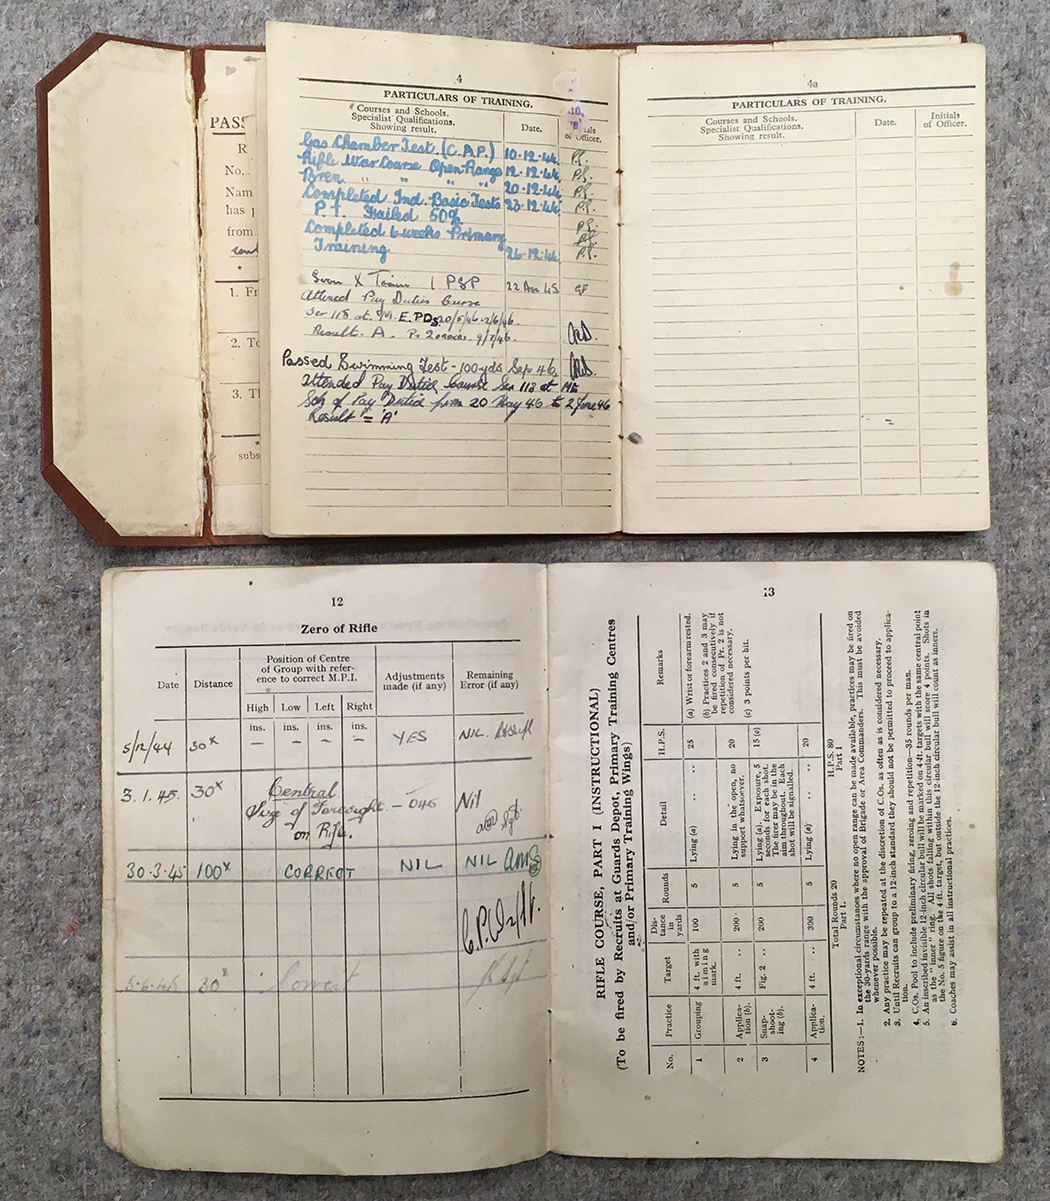 PASS
R
No...
Nam
has
from
*
1. Fr
2. To
3. Th
*
subs
4
PARTICULARS OF TRAINING.
Courses and Schools.
Specialist Qualifications.
Showing result.
Date.
of Officer.
Gas Chamber Test (C.A.P.) 10-12-44 P.S.
Rifle War Course Open Range 12-12-44 P.S.
Bren " " " " 20-12-44 P.S.
Completed Ind. Basic Tests 23-12-44 P.S.
P.T. Failed 50% P.S.
Completed 6 weeks Primary P.S.
Training 26-12-44 P.S.
22 45
Attended Pay Duties Course
Ser 118 at M.E. 20/5/46-2/6/46.
Result. A. 9/7/46.
Passed Swimming Test - 100 yds Sep 46
Attended Pay Duties Course Ser 118 at ME
Sch of Pay Duties from 20 May 46 to 2 June 46
Result = 'A'
4a
PARTICULARS OF TRAINING.
Courses and Schools.
Specialist Qualifications.
Showing result.
Date.
Initials
of Officer.
12
Zero of Rifle
Date
Distance
Position of Centre
of Group with refer-
ence to correct M.P.I.
High Low Left Right
ins. ins. ins. ins.
Adjustments
made (if any)
Remaining
Error (if any)
5/12/44 30x - - - - YES NIL.
3.1.45. 30x Central Nil
Size of Foresight - 045
on Rifle.
30.3.45 100x CORRECT NIL NIL AMS
5.6.45 30x Correct
13
RIFLE COURSE, PART I (INSTRUCTIONAL)
(To be fired by Recruits at Guards Depot, Primary Training Centres
and/or Primary Training Wings)
No. Practice Target Dis-tance in yards Rounds Detail H.P.S. Remarks
1 Grouping 4 ft. with aiming mark. 100 5 Lying (a) .. .. 25
2 Applica-tion (b). 4 ft. .. 200 5 Lying in the open, no support whatsoever. 20
3 Snap-shoot-ing (b). Fig. 2 .. 200 5 Lying (a). Exposure, 5 seconds for each shot. The firer may be in the aim throughout. Each shot will be signalled. 15 (c)
4 Applica-tion. 4 ft. .. 300 5 Lying (a) .. .. 20
(a) Wrist or forearm rested.
(b) Practices 2 and 3 may be fired consecutively if repetition of Pr. 2 is not considered necessary.
(c) 3 points per hit.
Total Rounds 20
Part 1.
H.P.S. 80
Part 1
NOTES:—1. In exceptional circumstances where no open range can be made available, practices may be fired on
the 30-yards range with the approval of Brigade or Area Commanders. This must be avoided
whenever possible.
2. Any practice may be repeated at the discretion of C.Os. as often as is considered necessary.
3. Until Recruits can group to a 12-inch standard they should not be permitted to proceed to applica-
tion.
4. C.Os. Pool to include preliminary firing, zeroing and repetition—35 rounds per man.
5. An inscribed invisible 12-inch circular bull will be marked on 4-ft. targets with the same central point
as the "inner" ring. All shots falling within this circular bull will score 4 points. Shots in
the No. 5 figure on the 4-ft. target, but outside the 12-inch circular bull will count as inners.
6. Coaches may assist in all instructional practices.